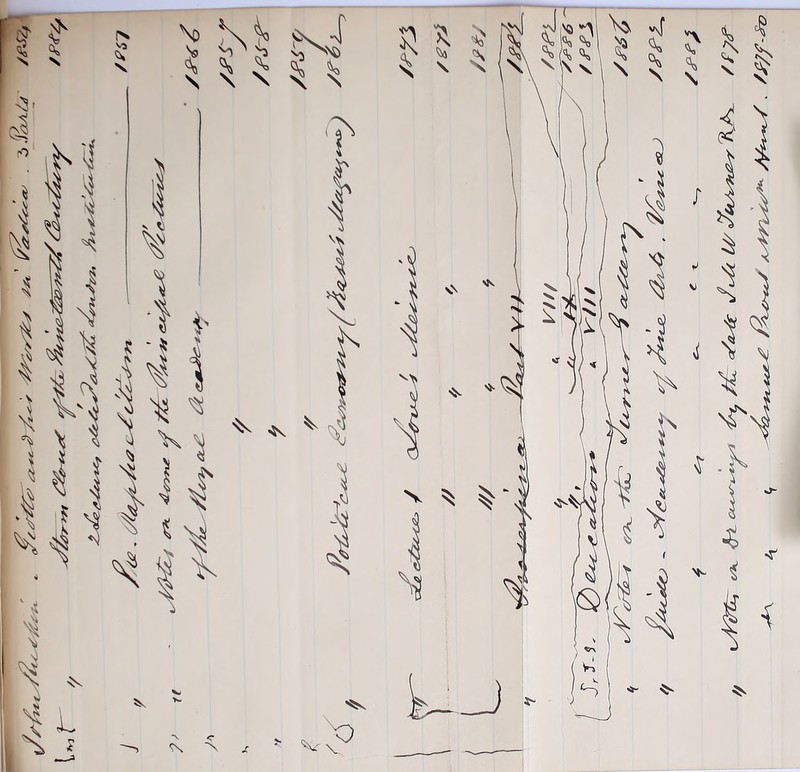 John Ruskin . Giotto and his Works in Padua . 3 Parts 1854
" Storm Cloud of the Nineteenth Century 1884
2 Lectures, deliv'd at the London Institution
" Pre-Raphaelitism 1851
" Notes on some of the Principal Pictures
of the Royal Academy 1866
" " 1857
" " 1858
" " 1859
" Political Economy (Fraser's Magazine) 1862
" Lecture I Love's Meinie 1873
II " " 1873
III " " 1881
" Proserpina Part VII 1882
" " VIII 1882
" IX 1886
Deucalion " VIII 1883
" Notes on the Turner Gallery 1856
" Guide - Academy of Fine Arts . Venice 1882
" " " " " 1883
" Notes on Drawings by the late J M W Turner R.A. 1878
" " " Samuel Prout & William Hunt . 1879-80